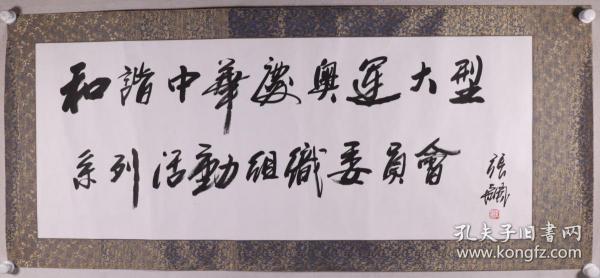 和諧中華慶奧運大型
系列活動組織委員會
張飚
孔夫子旧书网
www.kongfz.com